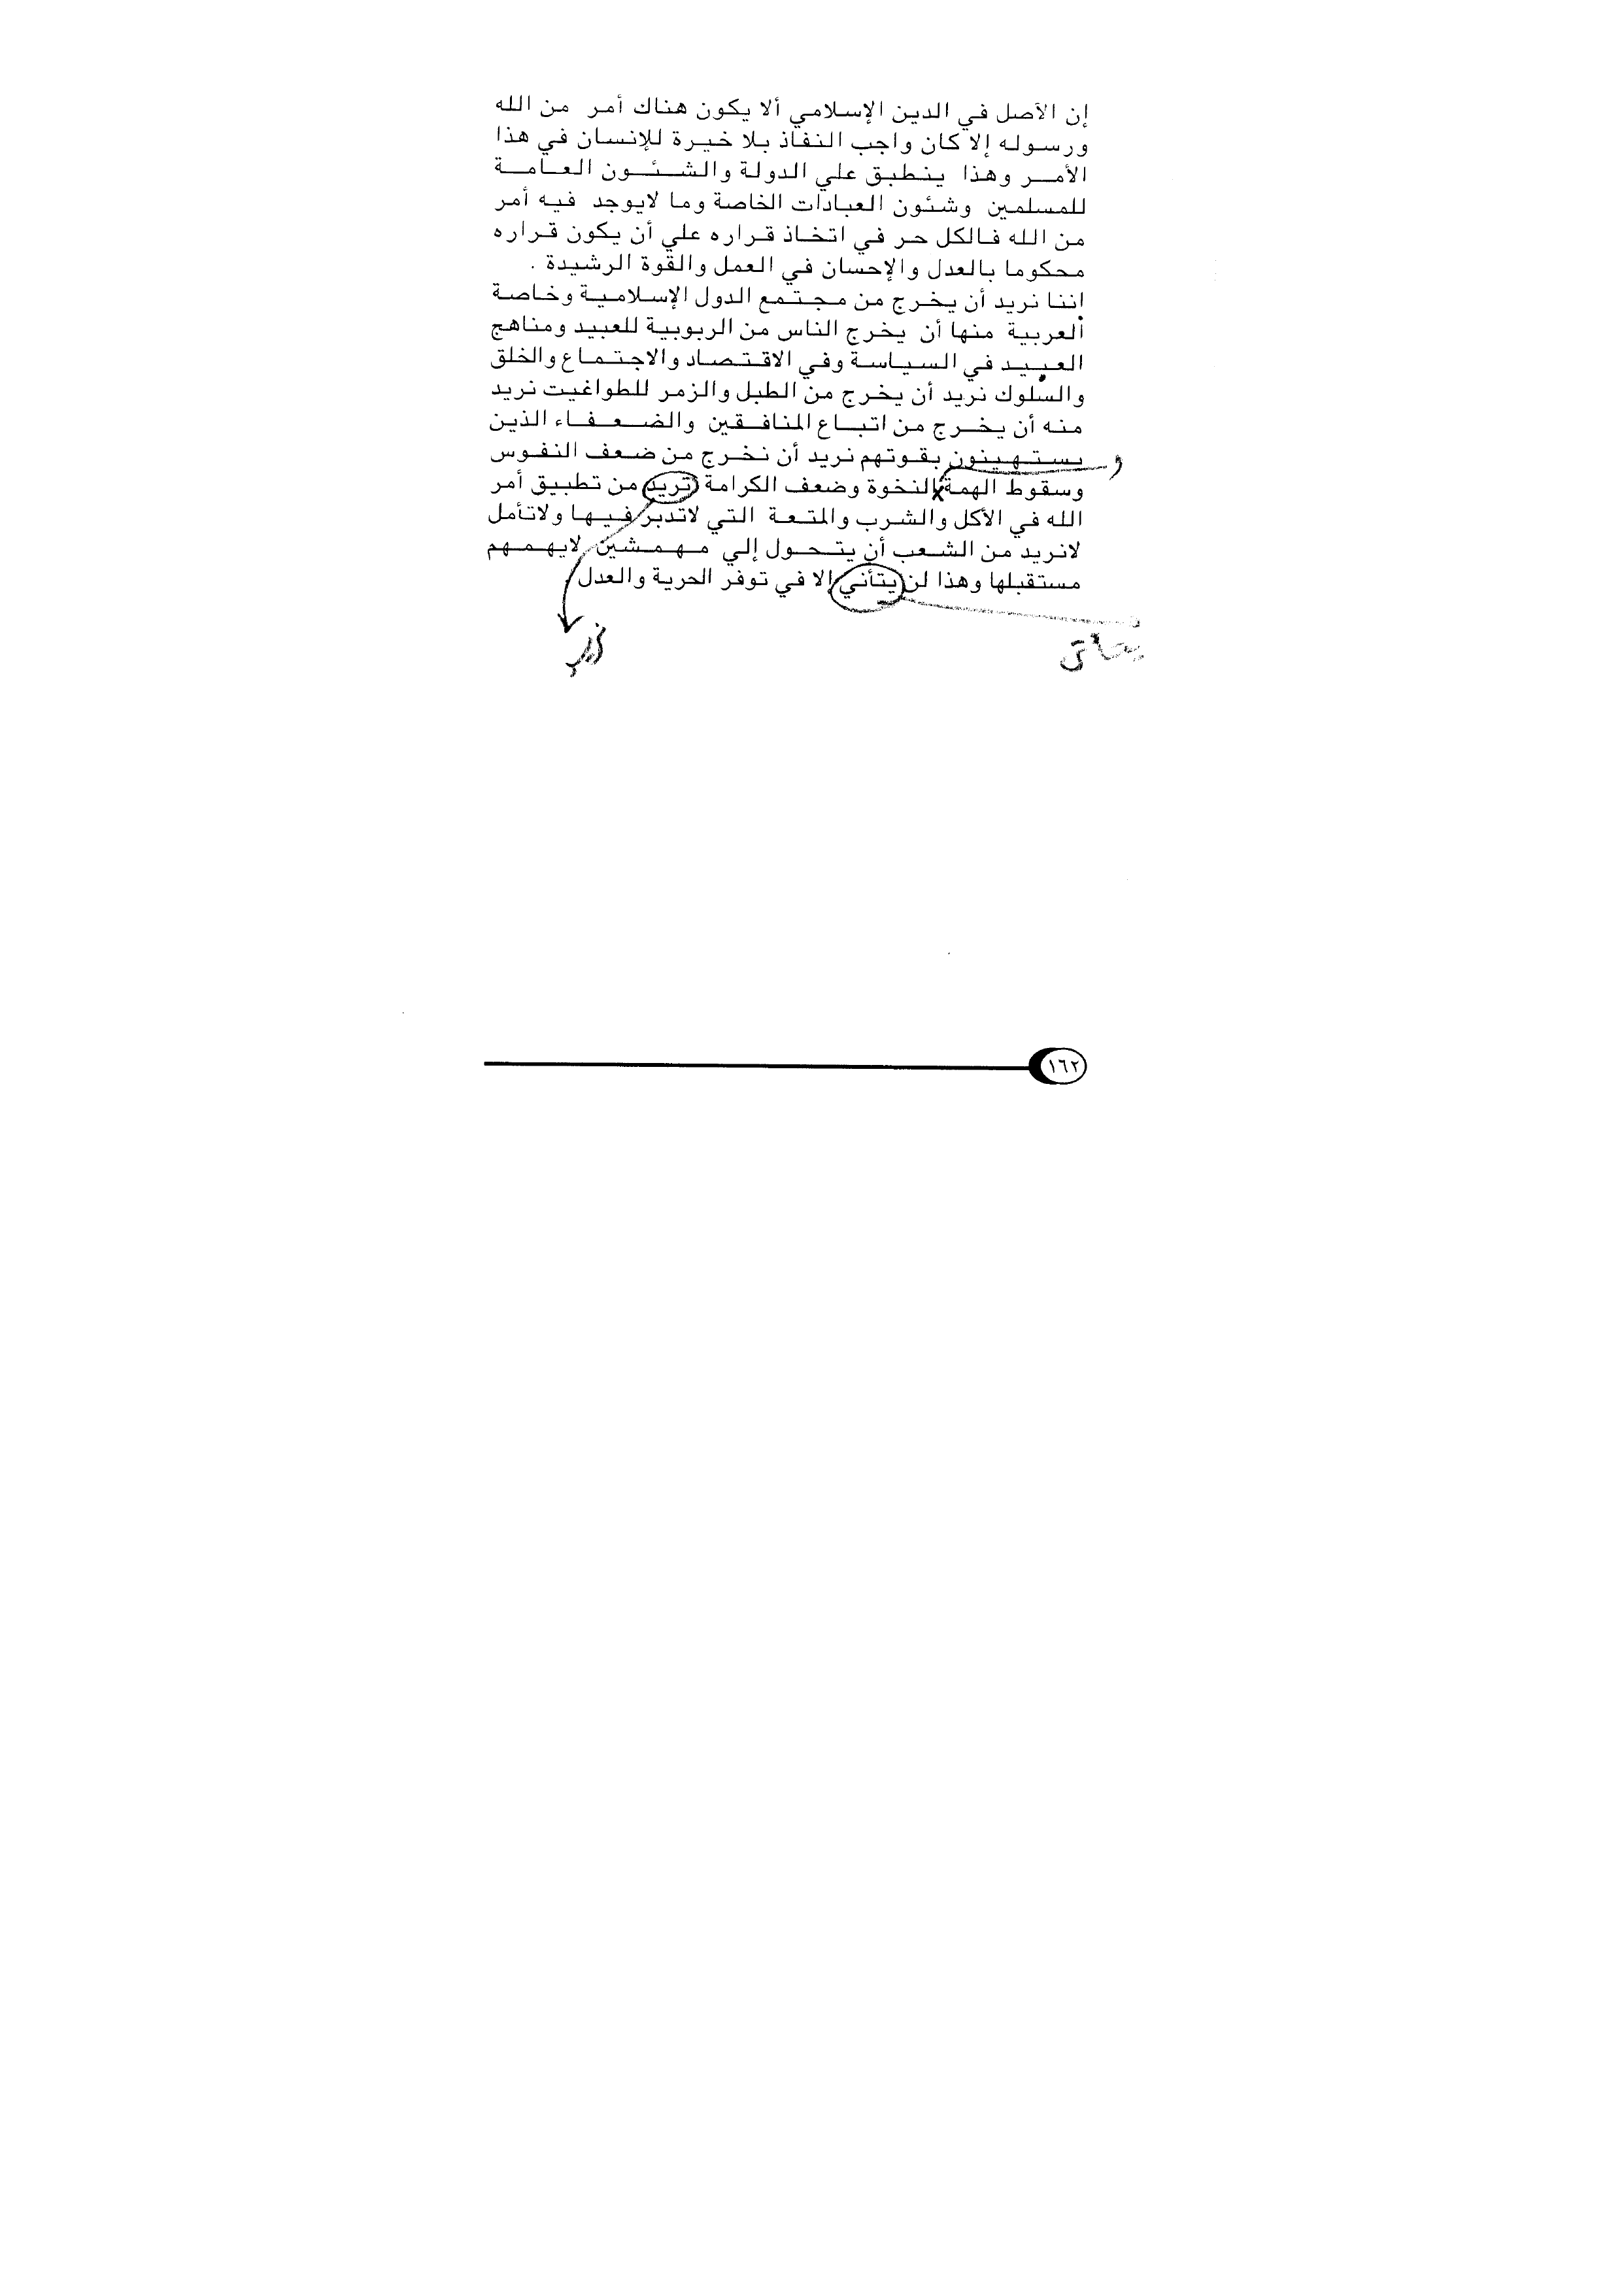 إن الأصل في الدين الإسلامي ألا يكون هناك أمر من الله
ورسوله إلا كان واجب النفاذ بلا خيرة للإنسان في هذا
الأمر وهذا ينطبق علي الدولة والشئون العامة
للمسلمين وشئون العبادات الخاصة وما لايوجد فيه أمر
من الله فالكل حر في اتخاذ قراره علي أن يكون قراره
محكوما بالعدل والإحسان في العمل والقوة الرشيدة .
اننا نريد أن يخرج من مجتمع الدول الإسلامية وخاصة
العربية منها أن يخرج الناس من الربوبية للعبيد ومناهج
العبيد في السياسة وفي الاقتصاد والاجتماع والخلق
والسلوك نريد أن يخرج من الطبل والزمر للطواغيت نريد
منه أن يخرج من اتباع المنافقين والضعفاء الذين
يستهينون بقوتهم نريد أن نخرج من ضعف النفوس
و
وسقوط الهمة النخوة وضعف الكرامة تريد من تطبيق أمر
الله في الأكل والشرب والمتعة التي لاتدبر فيها ولاتأمل
لانريد من الشعب أن يتحول إلي مهمشين لايهمهم
مستقبلها وهذا لن يتأني إلا في توفر الحرية والعدل
١٦٢